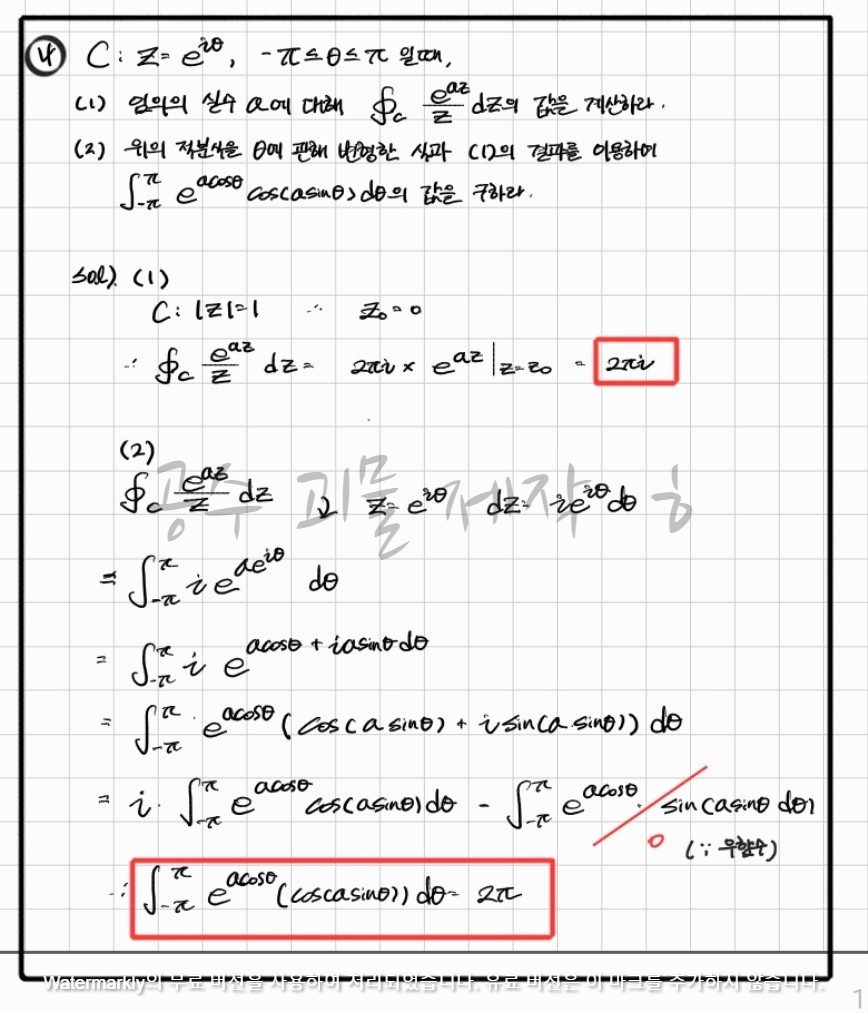 ④ C: z = e^{iθ}, -π ≤ θ ≤ π 일때,
(1) 임의의 실수 a에 대해 ∮_C e^{az}/z dz의 값을 계산하라.
(2) 위의 적분식을 θ에 관해 변형한 식과 (1)의 결과를 이용하여
∫_{-π}^{π} e^{acosθ} cos(asinθ)dθ의 값을 구하라.
sol) (1)
C: |z|=1 ∴ z₀=0
∴ ∮_C e^{az}/z dz = 2πi × e^{az}|_{z=z₀} = 2πi
(2)
∮_C e^{az}/z dz , z=e^{iθ} dz=ie^{iθ}dθ
공수 괴물 제작 ㅎ
= ∫_{-π}^{π} i e^{ae^{iθ}} dθ
= ∫_{-π}^{π} i e^{acosθ + iasinθ} dθ
= ∫_{-π}^{π} · e^{acosθ} (cos(a sinθ) + i sin(a sinθ)) dθ
= i · ∫_{-π}^{π} e^{acosθ} cos(asinθ)dθ - ∫_{-π}^{π} e^{acosθ} · sin(asinθ dθ)
0 (∵ 우함수)
∴ ∫_{-π}^{π} e^{acosθ} (cos(asinθ)) dθ = 2π
Watermarkly의 무료 버전을 사용하여 처리되었습니다. 유료 버전은 이 마크를 추가하지 않습니다.
1